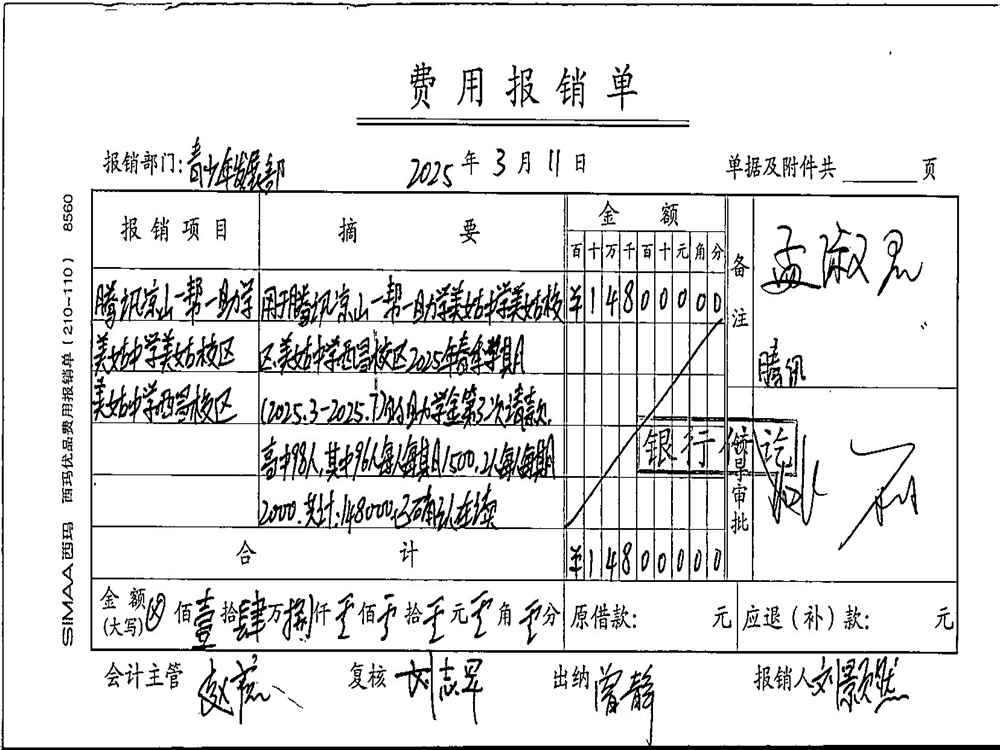 费用报销单
报销部门：青少年发展部 2025年3月11日 单据及附件共 页
报销项目 摘要 金额 备注
百十万千百十元角分
孟淑君
腾讯凉山一帮一助学 用于腾讯凉山一帮一助学美姑中学美姑校 ¥148000000
美姑中学美姑校区 区、美姑中学西昌校区2025年春季学期
腾讯
美姑中学西昌校区 (2025.3-2025.7)的助学金第2次请款,
高中98人,其中96人每人每期1500,2人每人每期
银行付讫
领导审批
2000.共计:148000,已确认在读
合计 ¥148000000
金额(大写) 佰壹拾肆万捌仟零佰零拾零元零角零分 原借款: 元 应退(补)款: 元
会计主管 复核 刘志军 出纳 曾静 报销人 刘景然
SIMAA西玛 西玛优品费用报销单(210-110) 8560